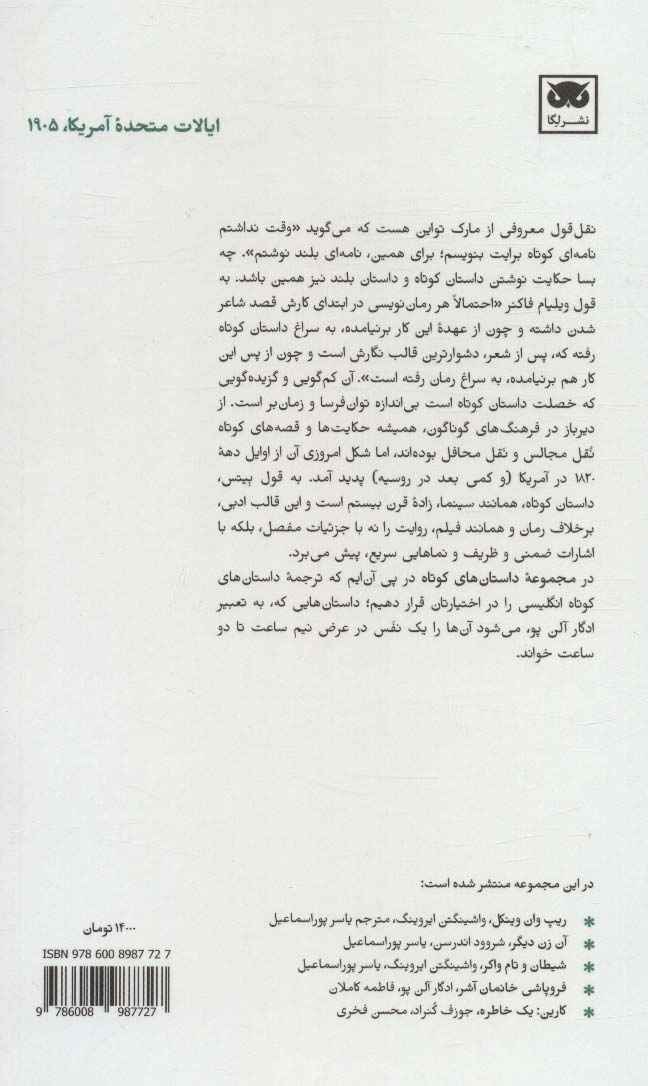 نشر لگا
ایالات متحدهٔ آمریکا، ۱۹۰۵
نقل‌قول معروفی از مارک تواین هست که می‌گوید «وقت نداشتم
نامه‌ای کوتاه برایت بنویسم؛ برای همین، نامه‌ای بلند نوشتم». چه
بسا حکایت نوشتن داستان کوتاه و داستان بلند نیز همین باشد. به
قول ویلیام فاکنر «احتمالاً هر رمان‌نویسی در ابتدای کارش قصد شاعر
شدن داشته و چون از عهدهٔ این کار برنیامده، به سراغ داستان کوتاه
رفته که، پس از شعر، دشوارترین قالب نگارش است و چون از پس این
کار هم برنیامده، به سراغ رمان رفته است». آن کم‌گویی و گزیده‌گویی
که خصلت داستان کوتاه است بی‌اندازه توان‌فرسا و زمان‌بر است. از
دیرباز در فرهنگ‌های گوناگون، همیشه حکایت‌ها و قصه‌های کوتاه
نُقل مجالس و نَقل محافل بوده‌اند، اما شکل امروزی آن از اوایل دههٔ
۱۸۲۰ در آمریکا (و کمی بعد در روسیه) پدید آمد. به قول بیتس،
داستان کوتاه، همانند سینما، زادهٔ قرن بیستم است و این قالب ادبی،
برخلاف رمان و همانند فیلم، روایت را نه با جزئیات مفصل، بلکه با
اشارات ضمنی و ظریف و نماهایی سریع، پیش می‌برد.
در مجموعهٔ داستان‌های کوتاه در پی آن‌ایم که ترجمهٔ داستان‌های
کوتاه انگلیسی را در اختیارتان قرار دهیم؛ داستان‌هایی که، به تعبیر
ادگار آلن پو، می‌شود آن‌ها را یک نفَس در عرض نیم ساعت تا دو
ساعت خواند.
در این مجموعه منتشر شده است:
* ریپ وان وینکل، واشینگتن ایروینگ، مترجم یاسر پوراسماعیل
* آن زن دیگر، شروود اندرسن، یاسر پوراسماعیل
* شیطان و تام واکر، واشینگتن ایروینگ، یاسر پوراسماعیل
* فروپاشی خاندان آشر، ادگار آلن پو، فاطمه کاملان
* کارین: یک خاطره، جوزف کُنراد، محسن فخری
۱۴۰۰۰ تومان
ISBN 978 600 8987 72 7
9 786008 987727